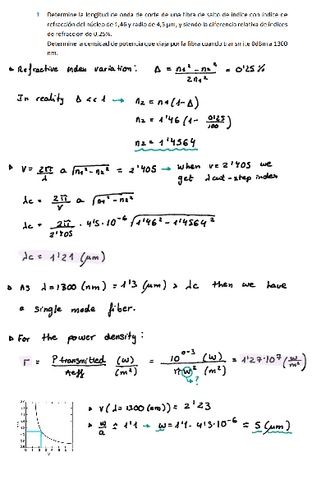 1 Determine la longitud de onda de corte de una fibra de salto de índice con índice de
refracción del núcleo de 1,46 y radio de 4,5 μm, y siendo la diferencia relativa de índices
de refracción de 0,25%.
Determinar la densidad de potencia que viaja por la fibra cuando transmite 0dBm a 1300
nm.
Refractive index variation: Δ = n1² - n2² / 2n1² = 0'25%
In reality Δ << 1 → n2 = n1(1-Δ)
n2 = 1'46 (1 - 0'25/100)
n2 = 1'4564
V = 2π/λ a √n1² - n2² = 2'405 → when V = 2'405 we
get λcut-step index
λc = 2π/V a √n1² - n2²
λc = 2π/2'405 · 4'5·10^-6 √1'46² - 1'4564²
λc = 1'21 (μm)
As λ = 1300 (nm) = 1'3 (μm) > λc then we have
a single mode fiber.
For the power density:
Γ = P transmitted/Aeff (W)/(m²) = 10^0-3/πw² (W)/(m²) = 1'27·10^7 (W/m²)
?
V(λ = 1300 (nm)) = 2'23
w/a ≈ 1'1 → w = 1'1 · 4'5·10^-6 = 5 (μm)